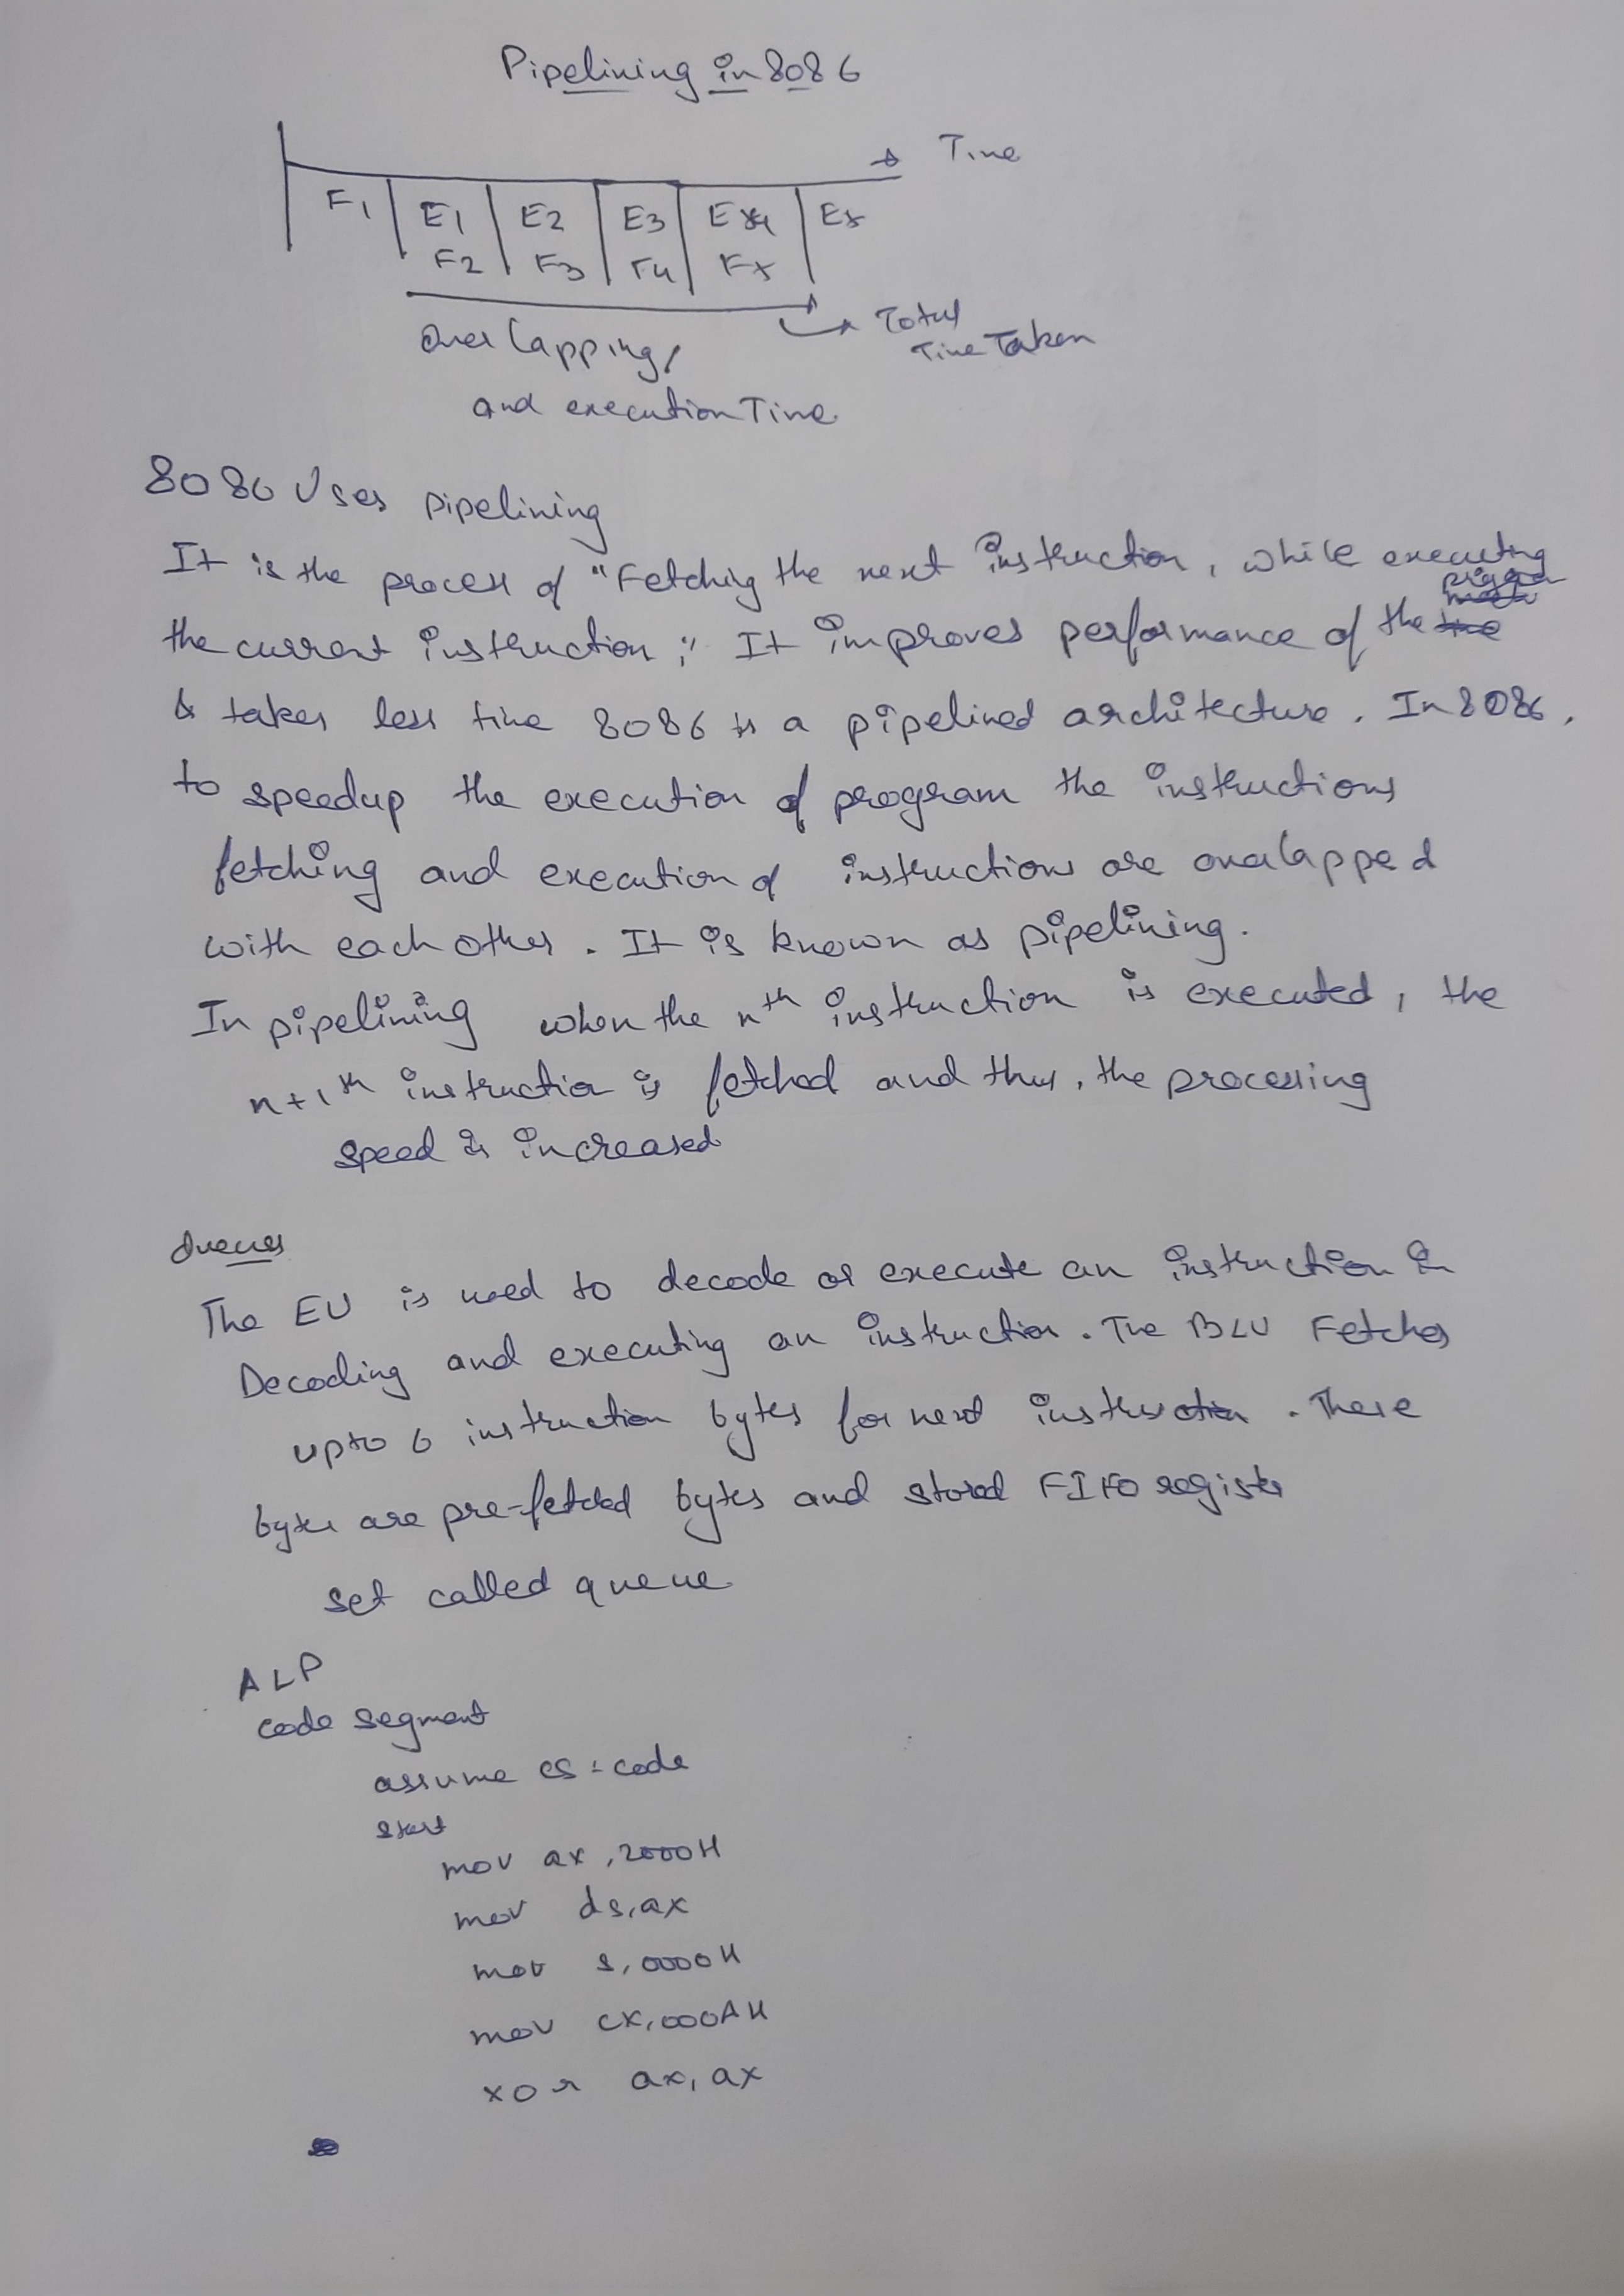 Pipelining in 8086
Time
F1 E1 E2 E3 E4 Ex
F2 F3 F4 Fx
Total
Time Taken
Overlapping
and execution Time
8086 Uses pipelining
It is the process of "Fetching the next instruction, while executing
the current instruction;" It improves performance of the
& takes less time 8086 is a pipelined architecture. In 8086,
to speedup the execution of program the instructions
fetching and execution of instructions are overlapped
with each other. It is known as pipelining.
In pipelining when the nth instruction is executed, the
n+1th instruction is fetched and thus, the processing
speed is increased
Queues
The EU is used to decode or execute an instruction in
Decoding and executing an instruction. The BIU Fetches
upto 6 instruction bytes for next instruction. These
bytes are pre-fetched bytes and stored FIFO register
set called queue
ALP
code segment
assume cs:code
start
mov ax,2000H
mov ds,ax
mov s,0000H
mov cx,000AH
xor ax,ax